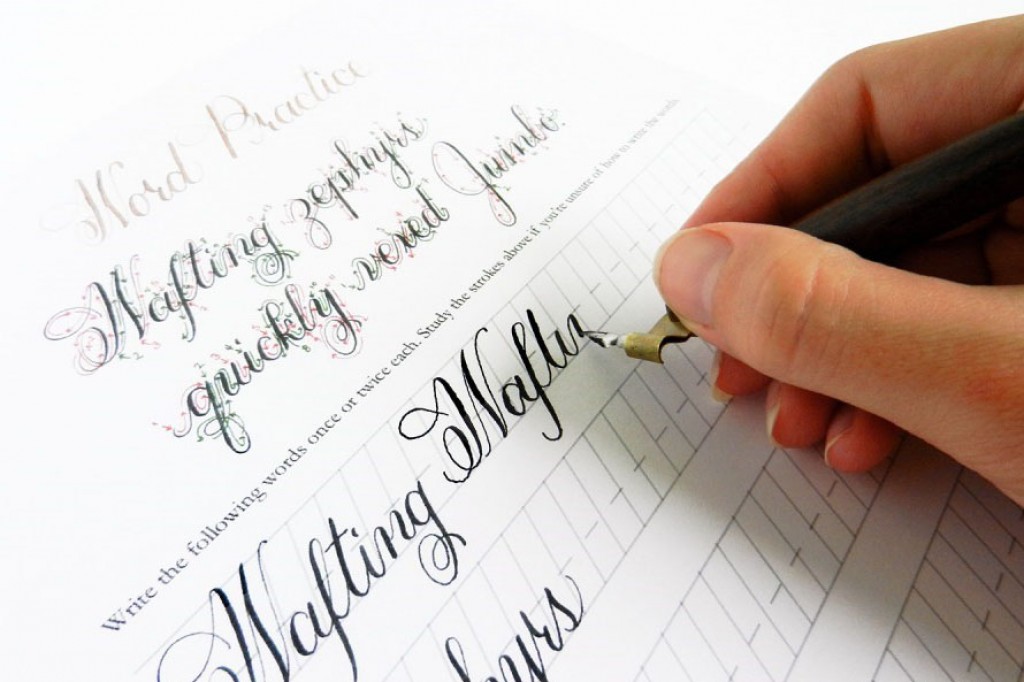 Word Practice
Wafting zephyrs
quickly vexed Jumbo.
Write the following words once or twice each. Study the strokes above if you're unsure of how to write the words
Wafting Waftin
hyrs